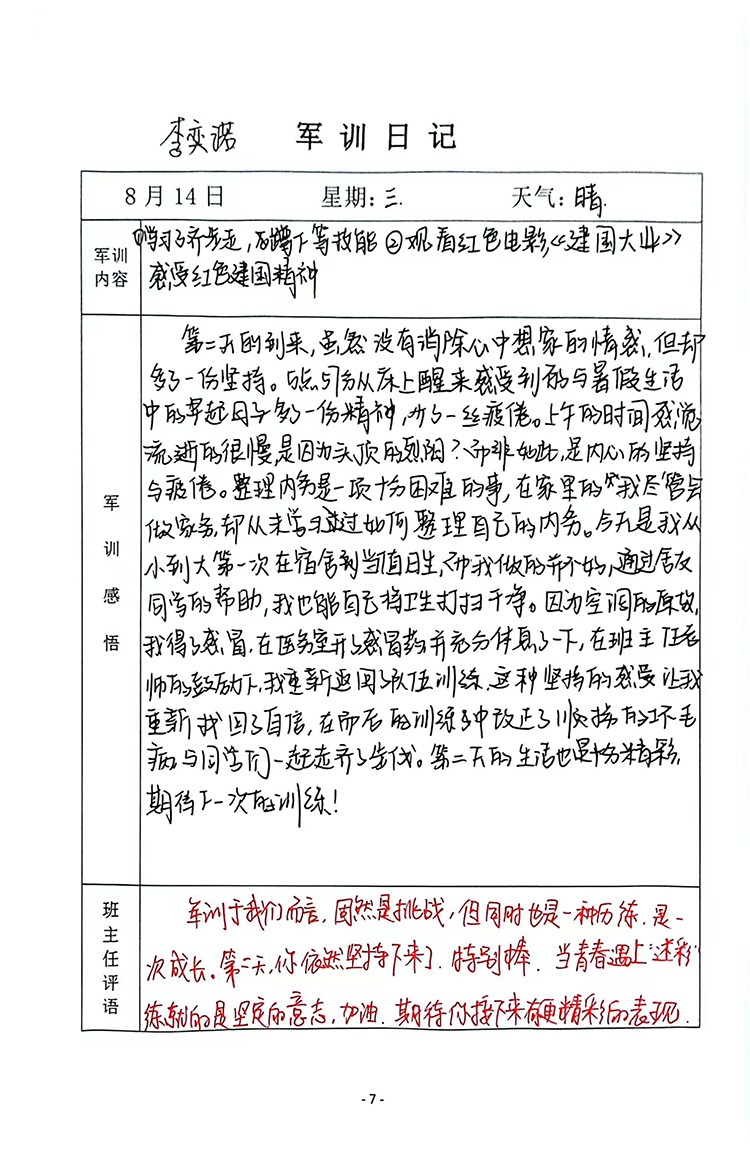 李奕诺 军训日记
8月14日 星期:三. 天气:晴.
军训内容
①学习了齐步走,蹲下等技能②观看红色电影《建国大业》
感受红色建国精神
军训感悟
第二天的到来,虽然没有消除心中想家的情感,但却
多了一份坚持。5点57分从床上醒来感受到的与暑假生活
中的早起日子多了一份精神,少了一丝疲倦。上午的时间感觉
流逝的很慢,是因为头顶的烈阳?而非如此,是内心的坚持
与疲倦。整理内务是一项十分困难的事,在家里的我尽管会
做家务,却从未学习过如何整理自己的内务。今天是我从
小到大第一次在宿舍到当值日生,而我做的并不好,通过舍友
同学的帮助,我也能自己将卫生打扫干净。因为空调的原故,
我得了感冒.在医务室开了感冒药并充分休息了一下,在班主任老
师的鼓励下,我重新返回了队伍训练.这种坚持的感受让我
重新找回了自信,在而后的训练中改正了顺拐的坏毛
病,与同学们一起走齐了步伐。第二天的生活也是十分精彩,
期待下一次的训练!
班主任评语
军训于我们而言,固然是挑战,但同时也是一种历练.是一
次成长。第二天,你依然坚持下来了.特别棒.当青春遇上"迷彩"
练就的是坚定的意志,加油.期待你接下来有更精彩的表现.
-7-